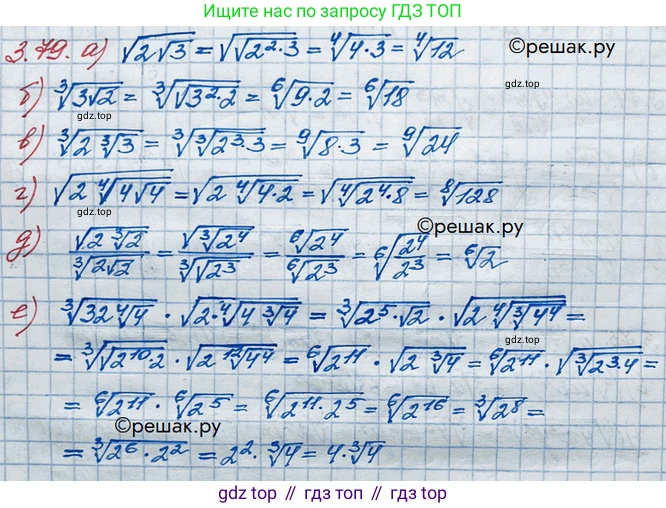 Ищите нас по запросу ГДЗ ТОП
3.79. а) √(2√3) = √(√(2²·3)) = ⁴√(4·3) = ⁴√12
©решак.ру
б) ³√(3√2) = ³√(√(3²·2)) = ⁶√(9·2) = ⁶√18
gdz.top
gdz.top
в) ³√(2 ³√3) = ³√(³√(2³·3)) = ⁹√(8·3) = ⁹√24
г) √(2 ⁴√(4√4)) = √(2 ⁴√(4·2)) = √(⁴√(2⁴·8)) = ⁸√128
gdz.top
©решак.ру
д) √(2 ³√2) / ³√(2√2) = √(³√2⁴) / ³√(√2³) = ⁶√2⁴ / ⁶√2³ = ⁶√(2⁴/2³) = ⁶√2
gdz.top
е) ³√(32 ⁴√4) · √(2·⁴√(4 ³√4)) = ³√(2⁵·√2) · √(2 ⁴√(³√4⁴)) =
= ³√(√(2¹⁰·2)) · √(2 ¹²√4⁴) = ⁶√2¹¹ · √(2 ³√4) = ⁶√2¹¹ · √(³√(2³·4)) =
= ⁶√2¹¹ · ⁶√2⁵ = ⁶√(2¹¹·2⁵) = ⁶√2¹⁶ = ³√2⁸ =
©решак.ру
= ³√(2⁶·2²) = 2²·³√4 = 4·³√4
gdz.top
gdz top // гдз топ // gdz top // гдз топ